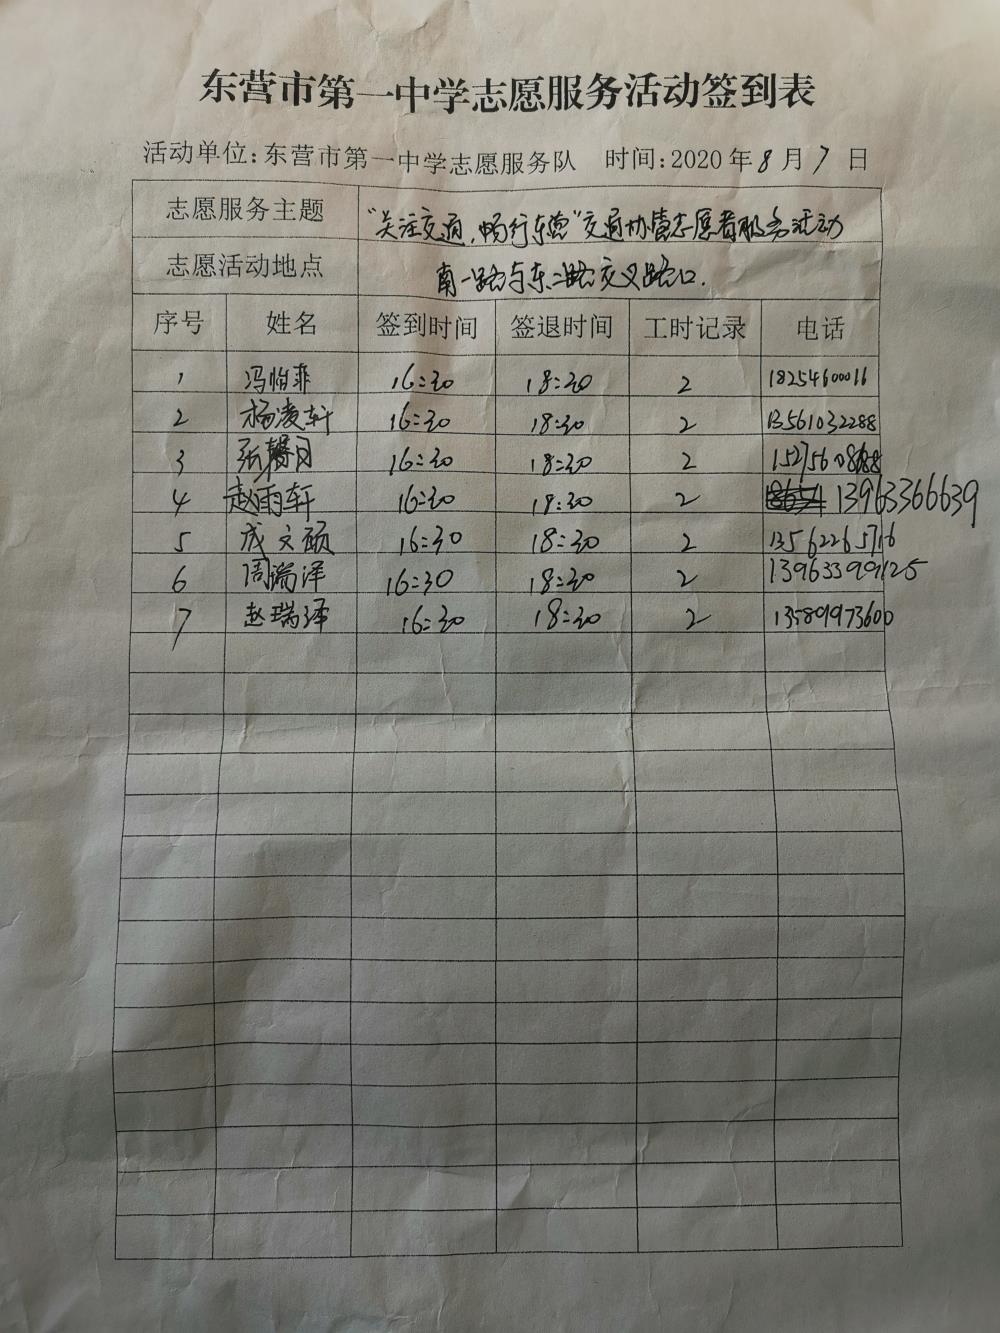 东营市第一中学志愿服务活动签到表
活动单位:东营市第一中学志愿服务队 时间:2020年8月7日
志愿服务主题 “关注交通,畅行东营”交通协管志愿者服务活动
志愿活动地点 南一路与东二路交叉路口.
序号 姓名 签到时间 签退时间 工时记录 电话
1 冯怡菲 16:30 18:30 2 18254600016
2 杨凌轩 16:30 18:30 2 13561032288
3 张馨月 16:30 18:30 2
4 赵雨轩 16:30 18:30 2 13963366639
5 成文硕 16:30 18:30 2 13562265716
6 周瑞泽 16:30 18:30 2
7 赵瑞泽 16:30 18:30 2 13589973600